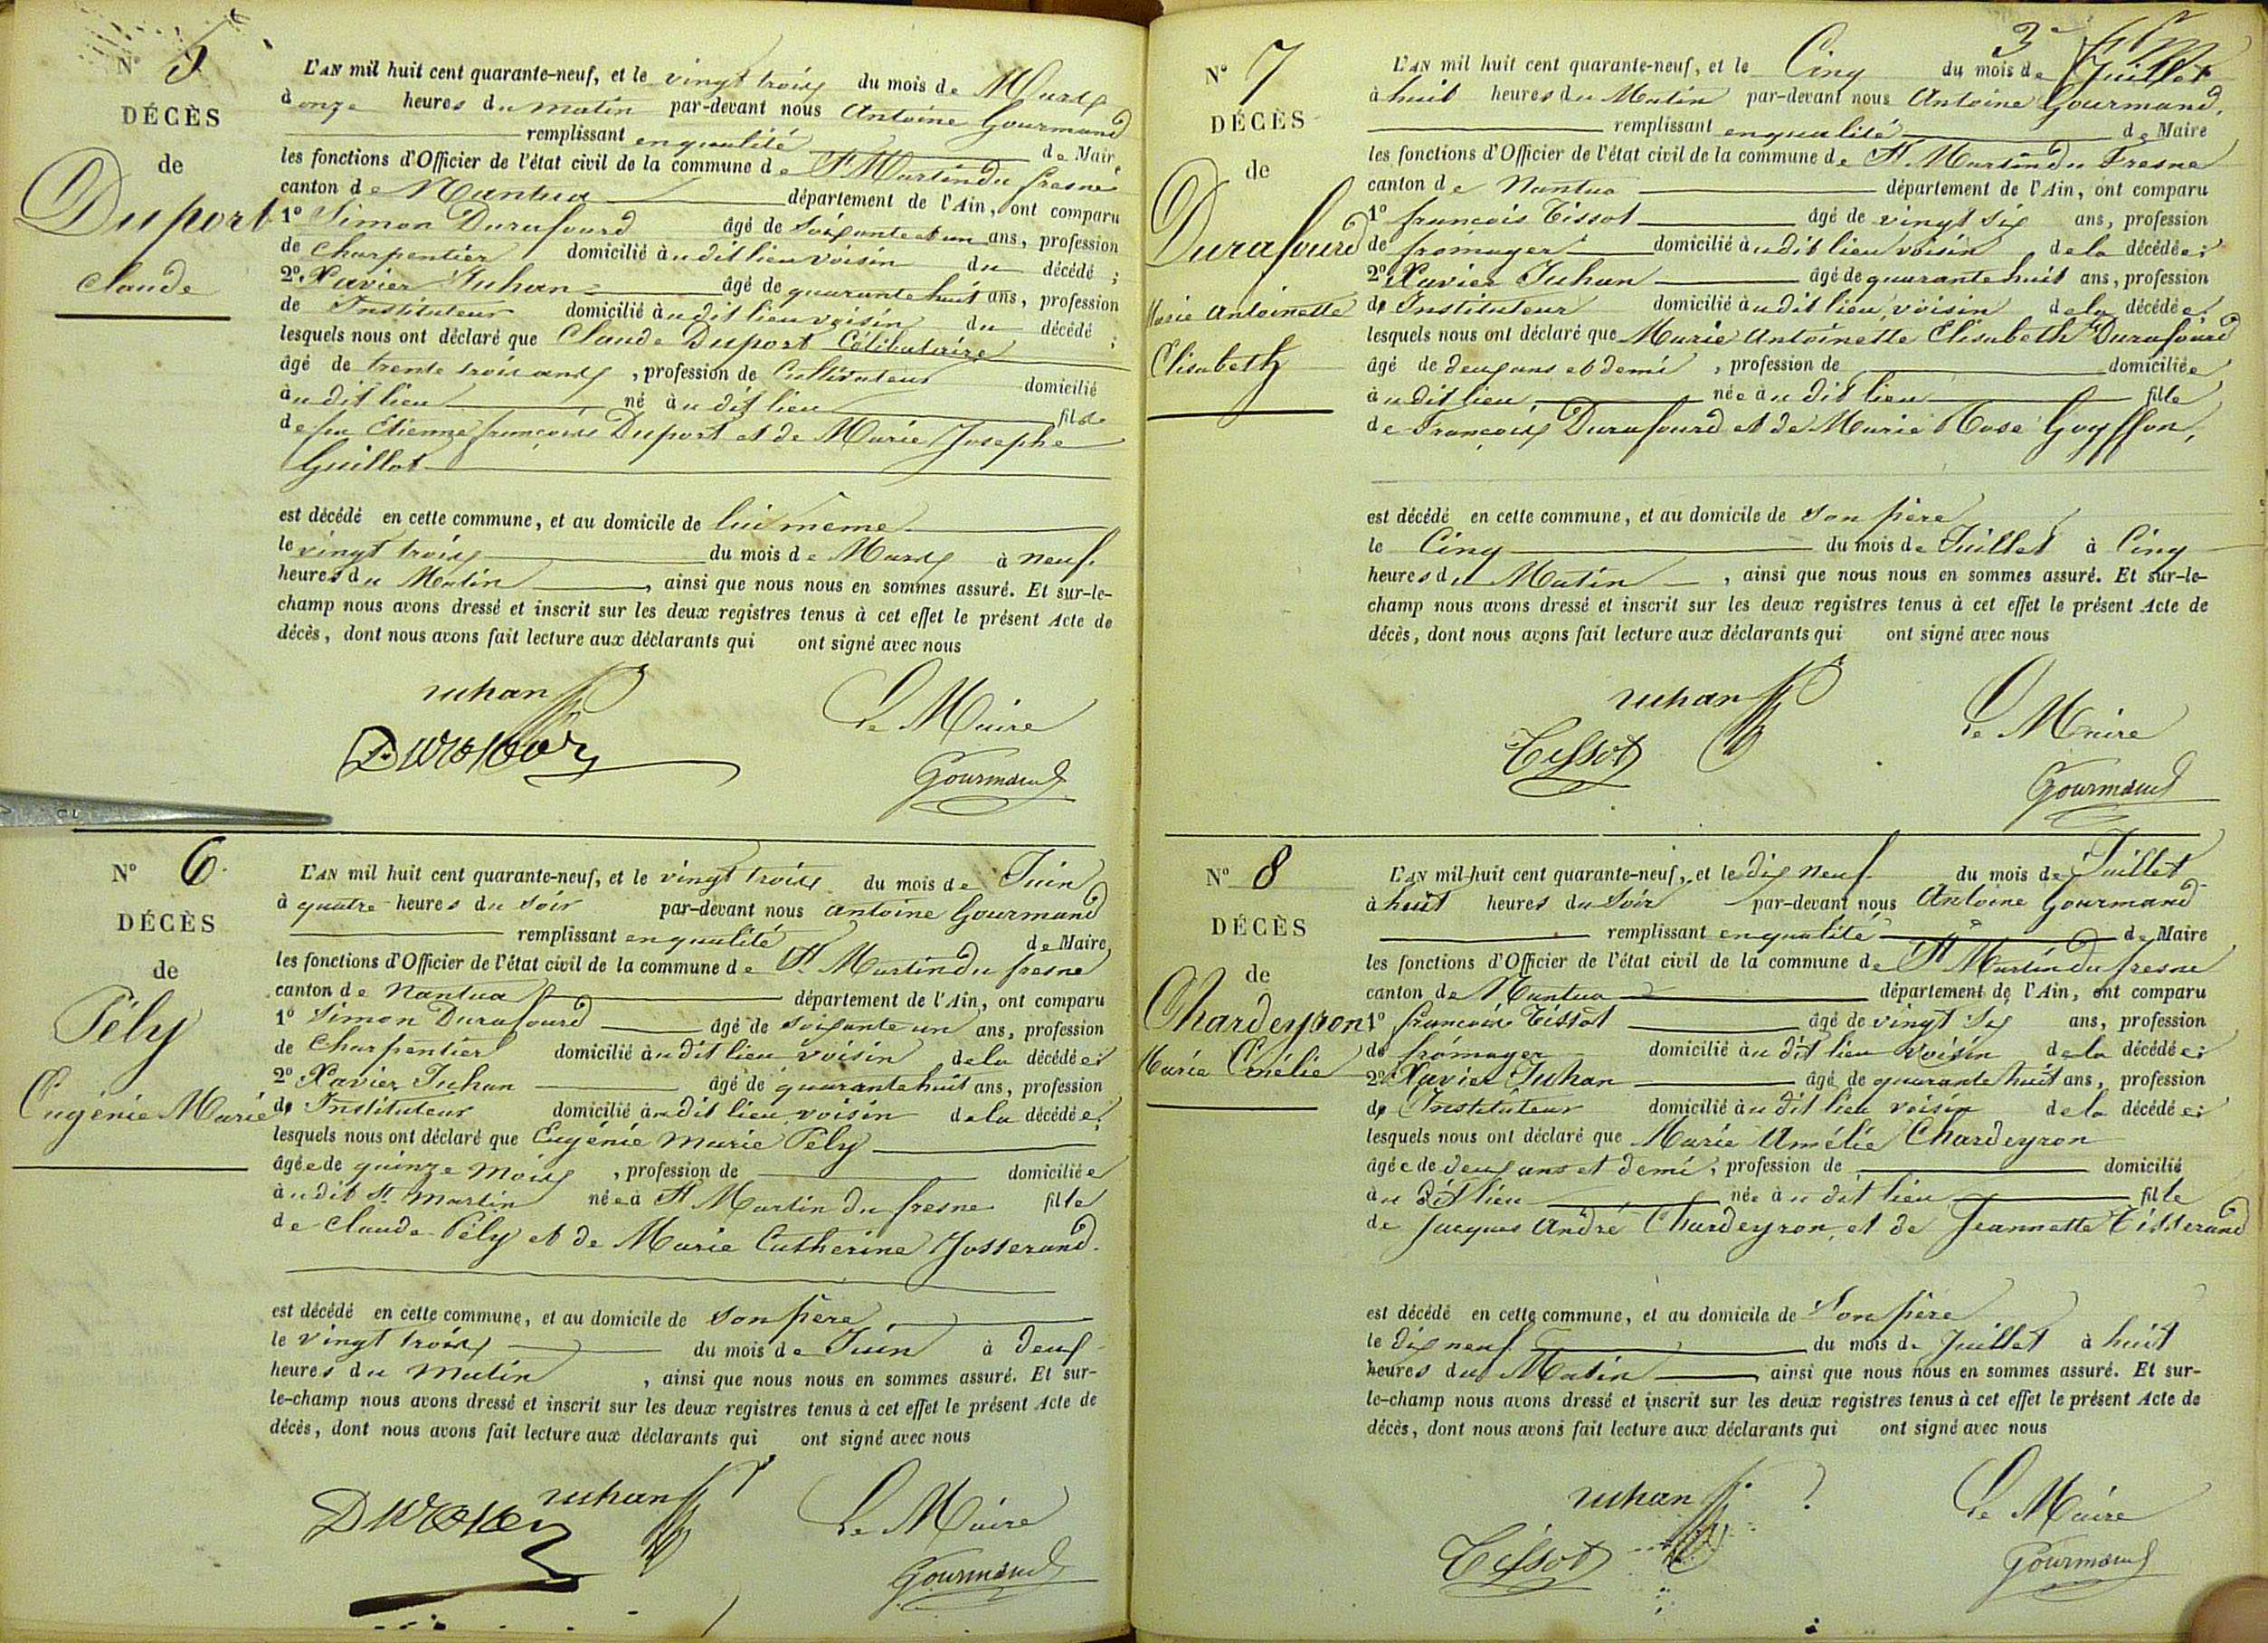 N° 5
DÉCÈS
de
Duport
claude
L'AN mil huit cent quarante-neuf, et le vingt trois du mois de Mars
à onze heures du matin par-devant nous Antoine Gourmand
remplissant en qualité de Maire
les fonctions d'Officier de l'état civil de la commune de St Martin du fresne
canton de Nantua département de l'Ain, ont comparu
1° Simon Durafourd âgé de soixante et un ans, profession
de charpentier domicilié àudit lieu voisin du décédé ;
2° Xavier Juhan âgé de quarante huit ans, profession
de Instituteur domicilié àudit lieu voisin du décédé ;
lesquels nous ont déclaré que Claude Duport Célibataire
âgé de trente trois ans, profession de Cultivateur domicilié
àudit lieu né àudit lieu fils
de feu Etienne françois Duport et de Marie Josephe
Guillot
est décédé en cette commune, et au domicile de lui même
le vingt trois du mois de Mars à neuf
heures du Matin, ainsi que nous nous en sommes assuré. Et sur-le-
champ nous avons dressé et inscrit sur les deux registres tenus à cet effet le présent Acte de
décès, dont nous avons fait lecture aux déclarants qui ont signé avec nous
Juhan
Le Maire
Gourmand
N° 6
DÉCÈS
de
Pély
Eugénie Marie
L'AN mil huit cent quarante-neuf, et le vingt trois du mois de Juin
à quatre heures du soir par-devant nous antoine Gourmand
remplissant en qualité de Maire
les fonctions d'Officier de l'état civil de la commune de St Martin du fresne
canton de Nantua département de l'Ain, ont comparu
1° Simon Durafourd âgé de soixante un ans, profession
de Charpentier domicilié àudit lieu voisin de la décédée ;
2° Xavier Juhan âgé de quarante huit ans, profession
de Instituteur domicilié àudit lieu voisin de la décédée ;
lesquels nous ont déclaré que Eugénie Marie Pély
âgée de quinze mois, profession de domiciliée
àudit St Martin née à St Martin du fresne fille
de Claude Pély et de Marie Catherine Josserand.
est décédé en cette commune, et au domicile de son père
le vingt trois du mois de Juin à deux
heures du matin, ainsi que nous nous en sommes assuré. Et sur-
le-champ nous avons dressé et inscrit sur les deux registres tenus à cet effet le présent Acte de
décès, dont nous avons fait lecture aux déclarants qui ont signé avec nous
Juhan
Le Maire
Gourmand
3e
N° 7
DÉCÈS
de
Durafourd
Marie Antoinette
Elisabeth
L'AN mil huit cent quarante-neuf, et le Cinq du mois de Juillet
à huit heures du Matin par-devant nous Antoine Gourmand,
remplissant en qualité de Maire
les fonctions d'Officier de l'état civil de la commune de St Martin du Fresne
canton de Nantua département de l'Ain, ont comparu
1° françois Tissot âgé de vingt six ans, profession
de fromager domicilié àudit lieu voisin de la décédée ;
2° Xavier Juhan âgé de quarante huit ans, profession
de Instituteur domicilié àudit lieu, voisin de la décédée ;
lesquels nous ont déclaré que Marie Antoinette Elisabeth Durafourd
âgé de deux ans et demi, profession de domiciliée
àudit lieu, née àudit lieu fille
de François Durafourd et de Marie Rose Goyffon,
est décédé en cette commune, et au domicile de son père
le Cinq du mois de Juillet à Cinq
heures du Matin, ainsi que nous nous en sommes assuré. Et sur-le-
champ nous avons dressé et inscrit sur les deux registres tenus à cet effet le présent Acte de
décès, dont nous avons fait lecture aux déclarants qui ont signé avec nous
Juhan
Le Maire
Tissot
Gourmand
N° 8
DÉCÈS
de
Chardeyron
Marie Amélie
L'AN mil huit cent quarante-neuf, et le dix neuf du mois de Juillet
à huit heures du Soir par-devant nous Antoine Gourmand
remplissant en qualité de Maire
les fonctions d'Officier de l'état civil de la commune de St Martin du fresne
canton de Nantua département de l'Ain, ont comparu
1° françois Tissot âgé de vingt six ans, profession
de fromager domicilié àu dit lieu voisin de la décédée ;
2° Xavier Juhan âgé de quarante huit ans, profession
de Instituteur domicilié àu dit lieu voisin de la décédée ;
lesquels nous ont déclaré que Marie Amélie Chardeyron
âgée de deux ans et demi, profession de domicilié
àu dit lieu née àu dit lieu fille
de Jacques André Chardeyron, et de Jeannette Tisserand
est décédé en cette commune, et au domicile de Son père
le dix neuf du mois de Juillet à huit
heures du Matin, ainsi que nous nous en sommes assuré. Et sur-
le-champ nous avons dressé et inscrit sur les deux registres tenus à cet effet le présent Acte de
décès, dont nous avons fait lecture aux déclarants qui ont signé avec nous
Juhan
Le Maire
Tissot
Gourmand